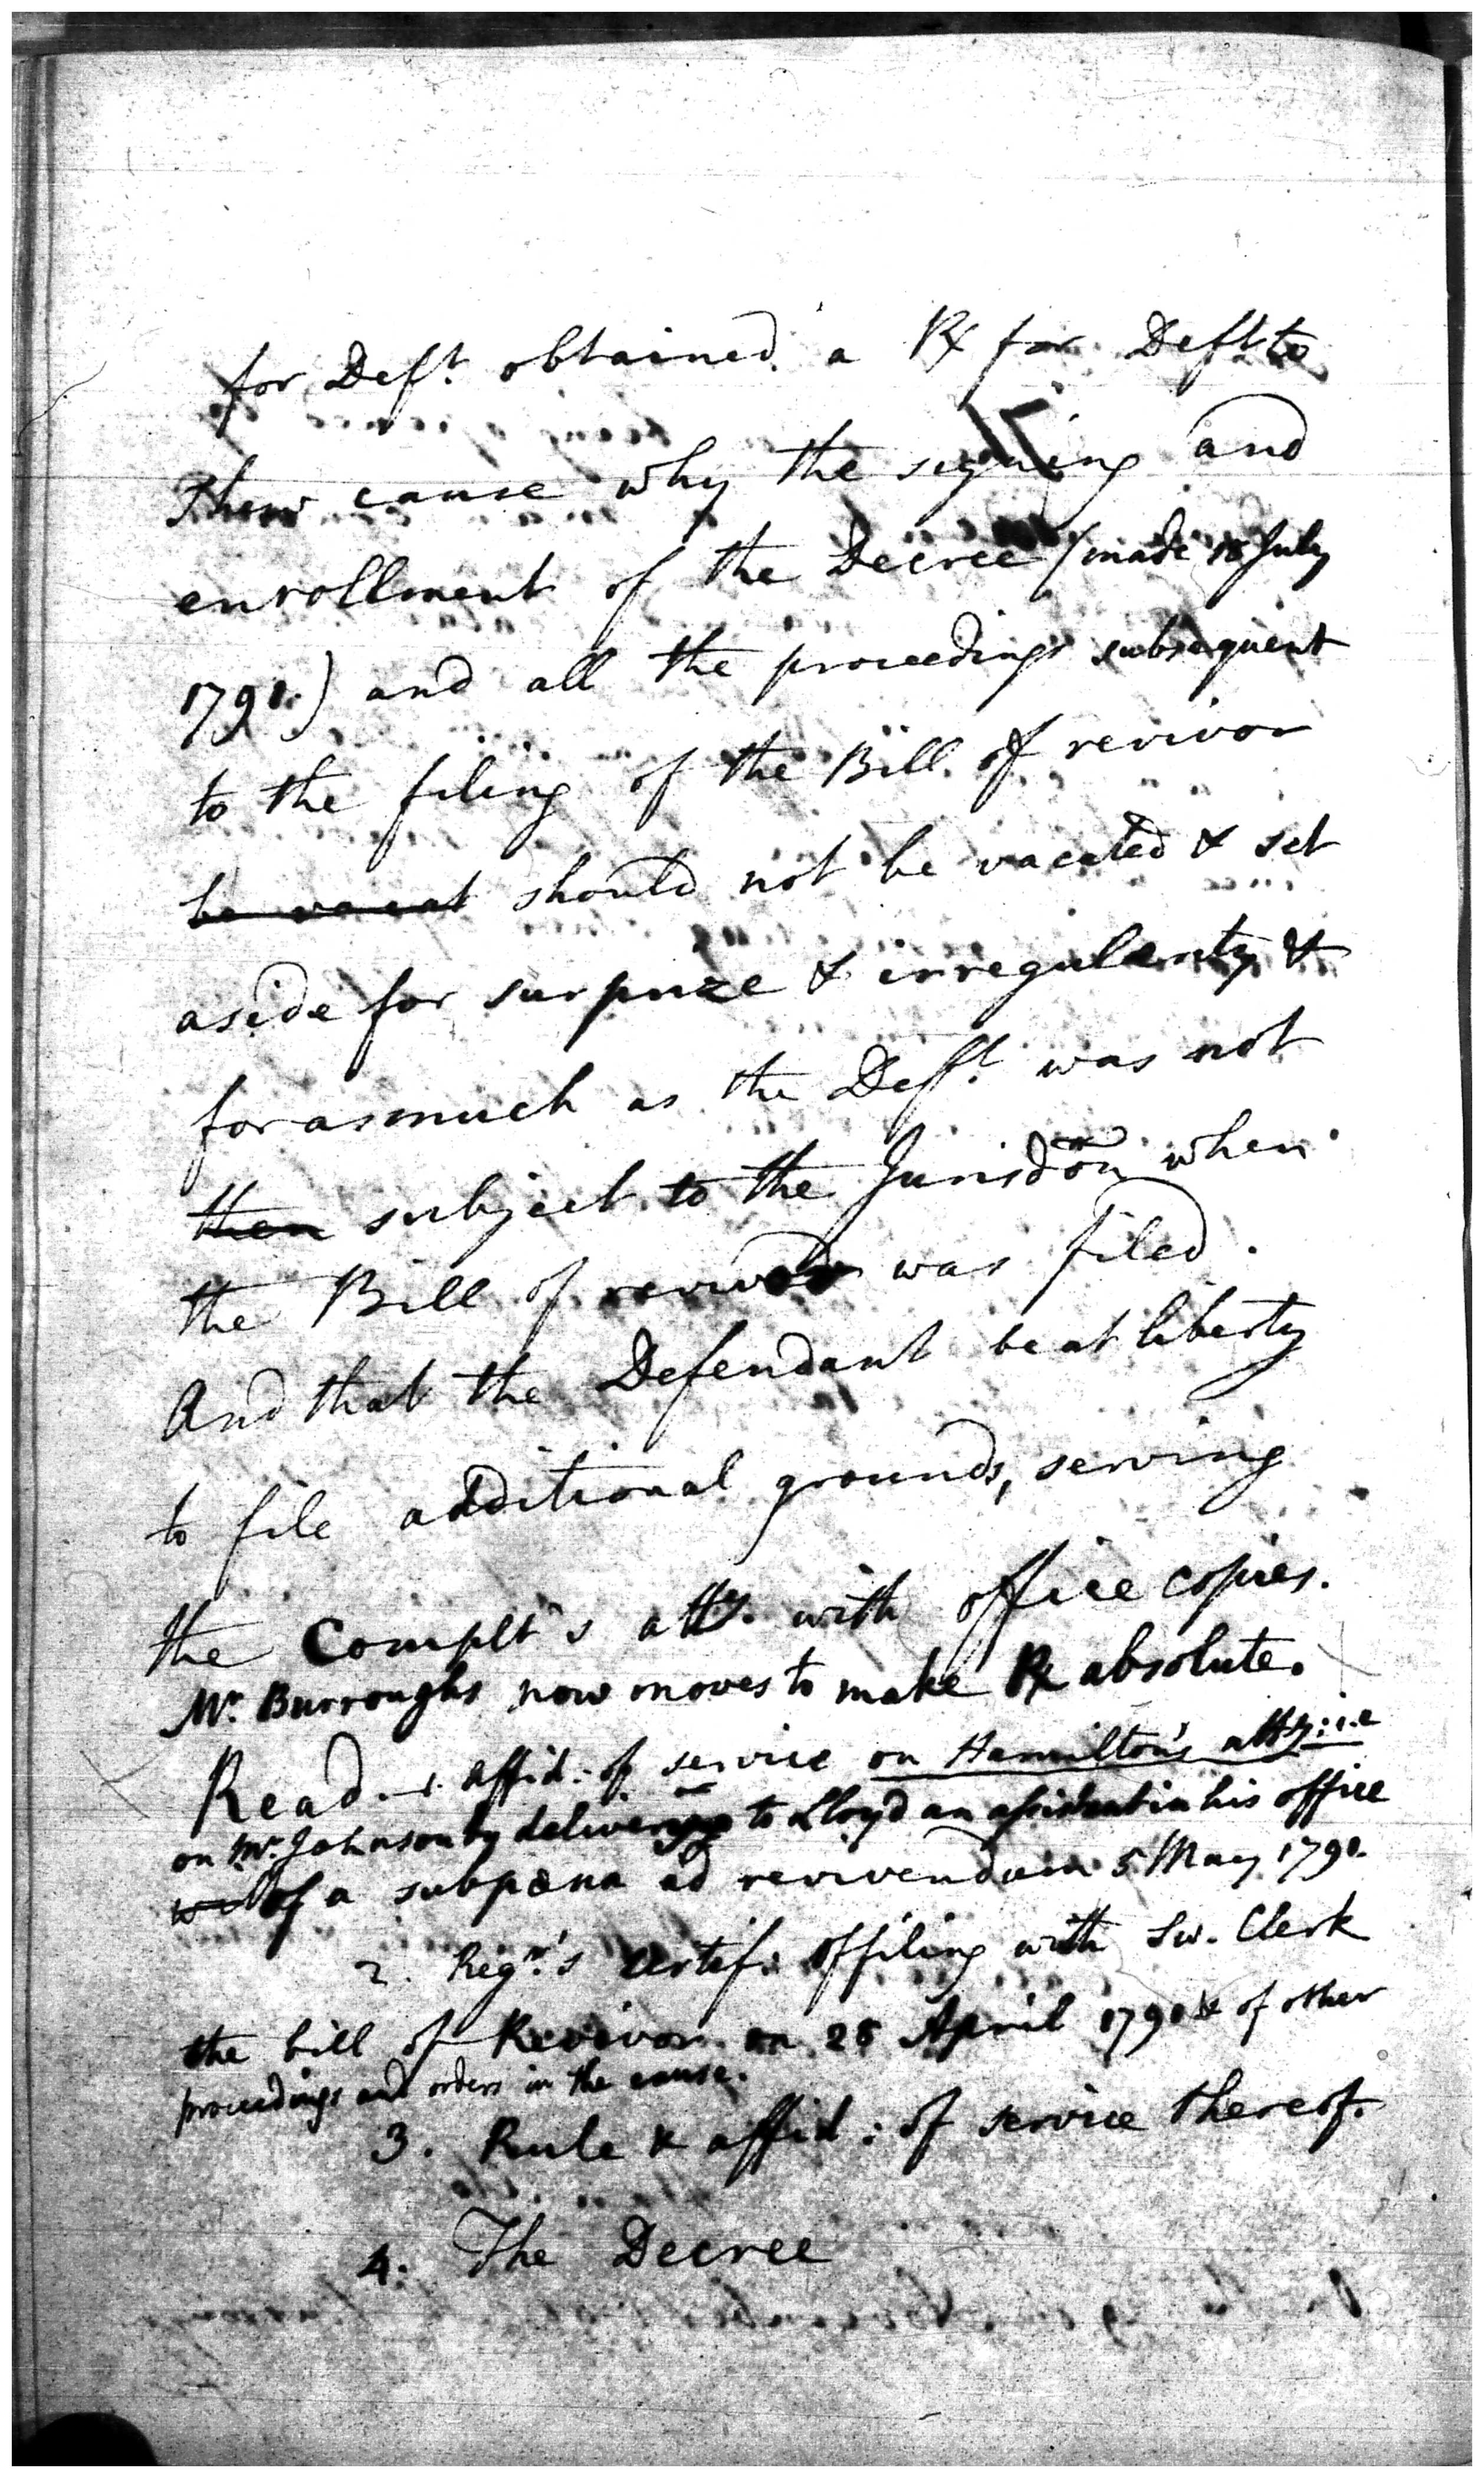 for Deft. obtained a Rx for Deft. to
Shew cause why the signing and
enrollment of the Decree (made 18 July
1791.) and all the proceedings subsequent
to the filing of the Bill of revivor
be vacat should not be vacated & set
aside for surprize & irregularity &
forasmuch as the Deft. was not
then subject to the Jurisdōn when
the Bill of revivor was filed.
And that the Defendant be at liberty
to file additional grounds, serving
the Complt's atty. with office copies.
Mr. Burroughs now moves to make Rx absolute.
Read. 1. Affid: of service on Hamilton's atty: i.e
on Mr. Johnson by delivering to Lloyd an assistant in his office
of a subpœna ad revivendum 5 May 1791.
2. Regr.'s Certif: of filing with Sw. Clerk
the bill of Revivor on 28 April 1791 & of other
proceedings and orders in the cause.
3. Rule & affid: of service thereof.
4. The Decree